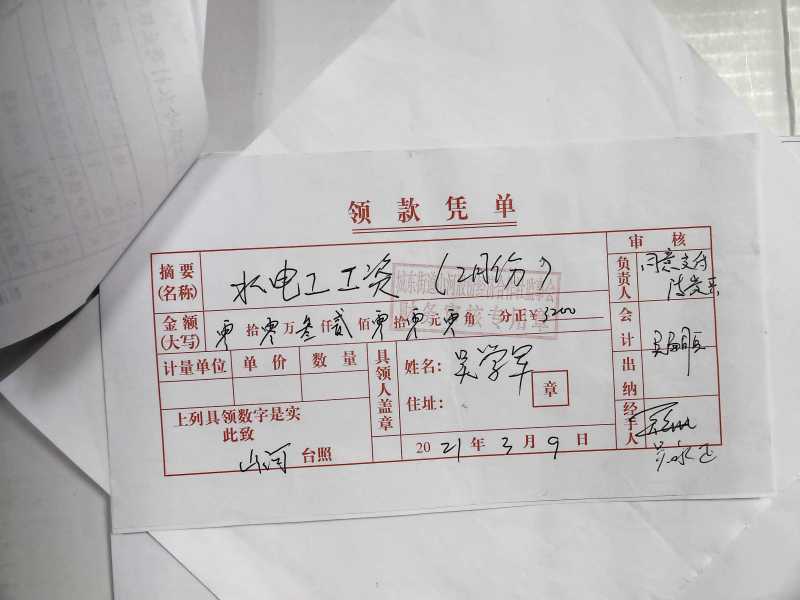 领款凭单
摘要(名称) 水电工工资（2月份）
审核
负责人 同意支付
金额(大写) 零拾零万叁仟贰佰零拾零元零角 分正￥3200
财务审核专用章
会计
计量单位 单价 数量
具领人盖章
姓名：吴学军
住址：
章
出纳
上列具领数字是实
此致
山河 台照
2021年3月9日
经手人